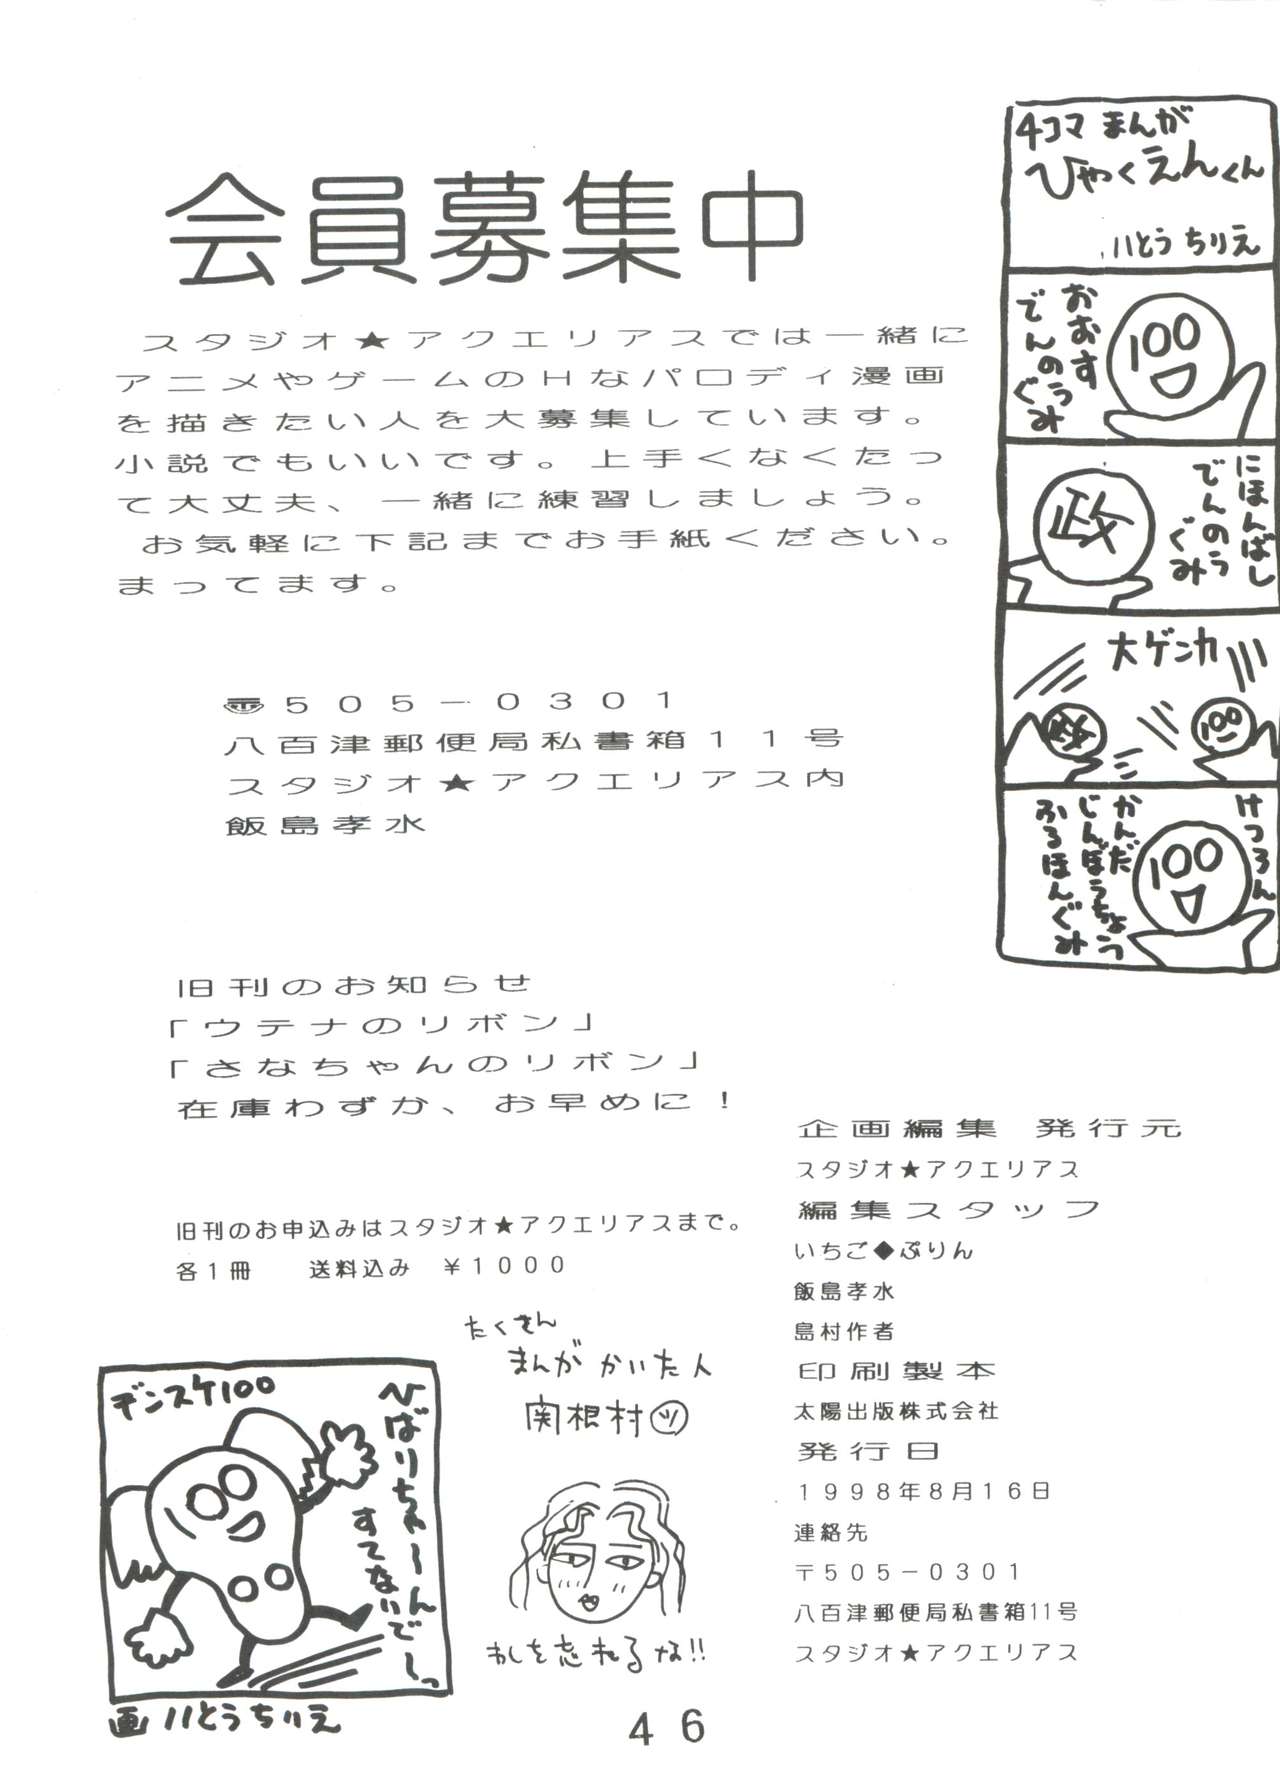 会員募集中
スタジオ★アクエリアスでは一緒に
アニメやゲームのHなパロディ漫画
を描きたい人を大募集しています。
小説でもいいです。上手くなくたっ
て大丈夫、一緒に練習しましょう。
お気軽に下記までお手紙ください。
まってます。
〠505-0301
八百津郵便局私書箱11号
スタジオ★アクエリアス内
飯島孝水
4コマ まんが
ひゃくえんくん
いとう ちりえ
おおす
でんのうぐみ
100
にほんばし
でんのうぐみ
政
大ゲンカ
政
100
けつろん
100
かんだ
じんぼうちょう
ふるほんぐみ
旧刊のお知らせ
「ウテナのリボン」
「さなちゃんのリボン」
在庫わずか、お早めに!
旧刊のお申込みはスタジオ★アクエリアスまで。
各1冊 送料込み ¥1000
企画編集 発行元
スタジオ★アクエリアス
編集スタッフ
いちご◆ぷりん
飯島孝水
島村作者
印刷製本
太陽出版株式会社
発行日
1998年8月16日
連絡先
〒505-0301
八百津郵便局私書箱11号
スタジオ★アクエリアス
たくさん
まんが かいた人
関根村ッ
わしを忘れるな!!
デンスケ100
ひばりちゃーん
すてないでーっ
画 いとうちりえ
46